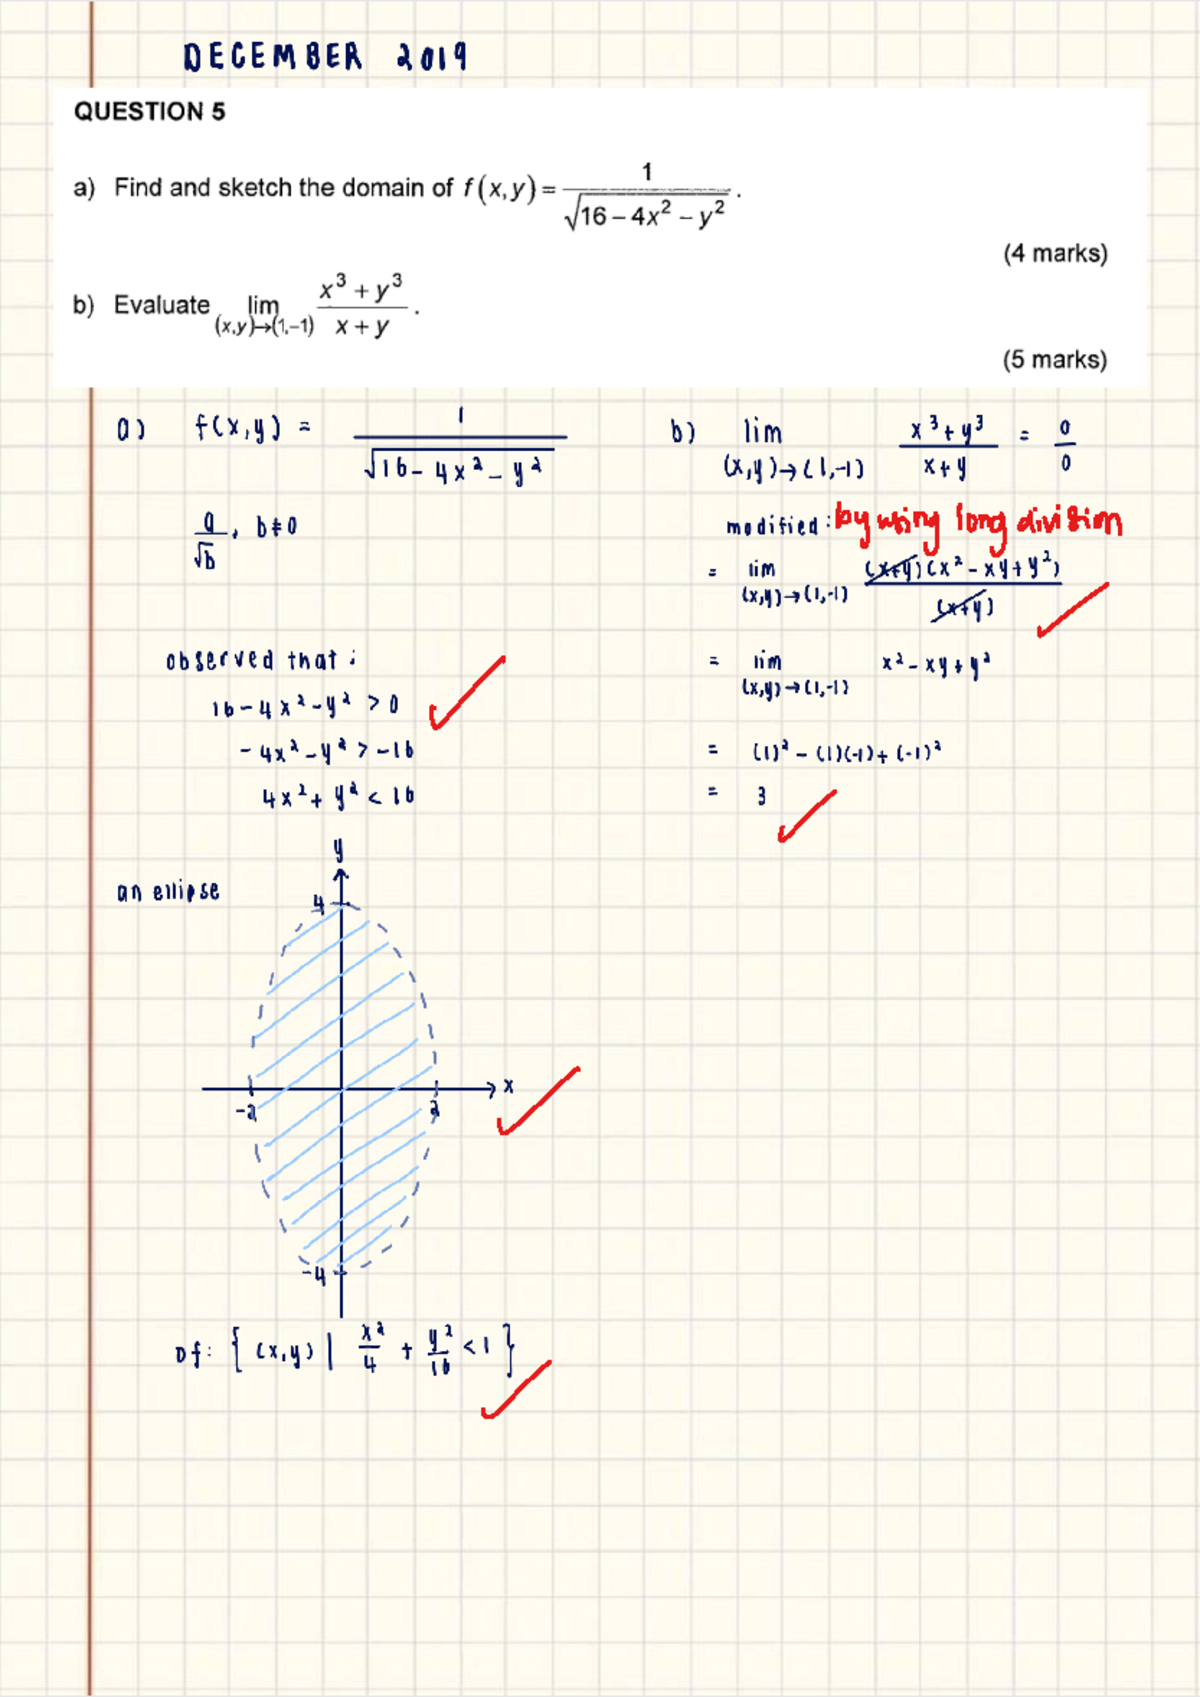 DECEMBER 2019
QUESTION 5
a) Find and sketch the domain of f(x,y) = 1/√(16 – 4x² – y²) .
(4 marks)
b) Evaluate lim (x,y)→(1,–1) (x³ + y³)/(x + y) .
(5 marks)
a) f(x,y) = 1/√(16 - 4x² - y²)
a/√b , b≠0
observed that :
16 - 4x² - y² > 0
- 4x² - y² > -16
4x² + y² < 16
an ellipse
y
4
x
-2
2
-4
Df: { (x,y) | x²/4 + y²/16 < 1 }
b) lim (x,y)→(1,-1) (x³ + y³)/(x + y) = 0/0
modified : by using long division
= lim (x,y)→(1,-1) (x+y)(x² - xy + y²)/(x+y)
= lim (x,y)→(1,-1) x² - xy + y²
= (1)² - (1)(-1) + (-1)²
= 3